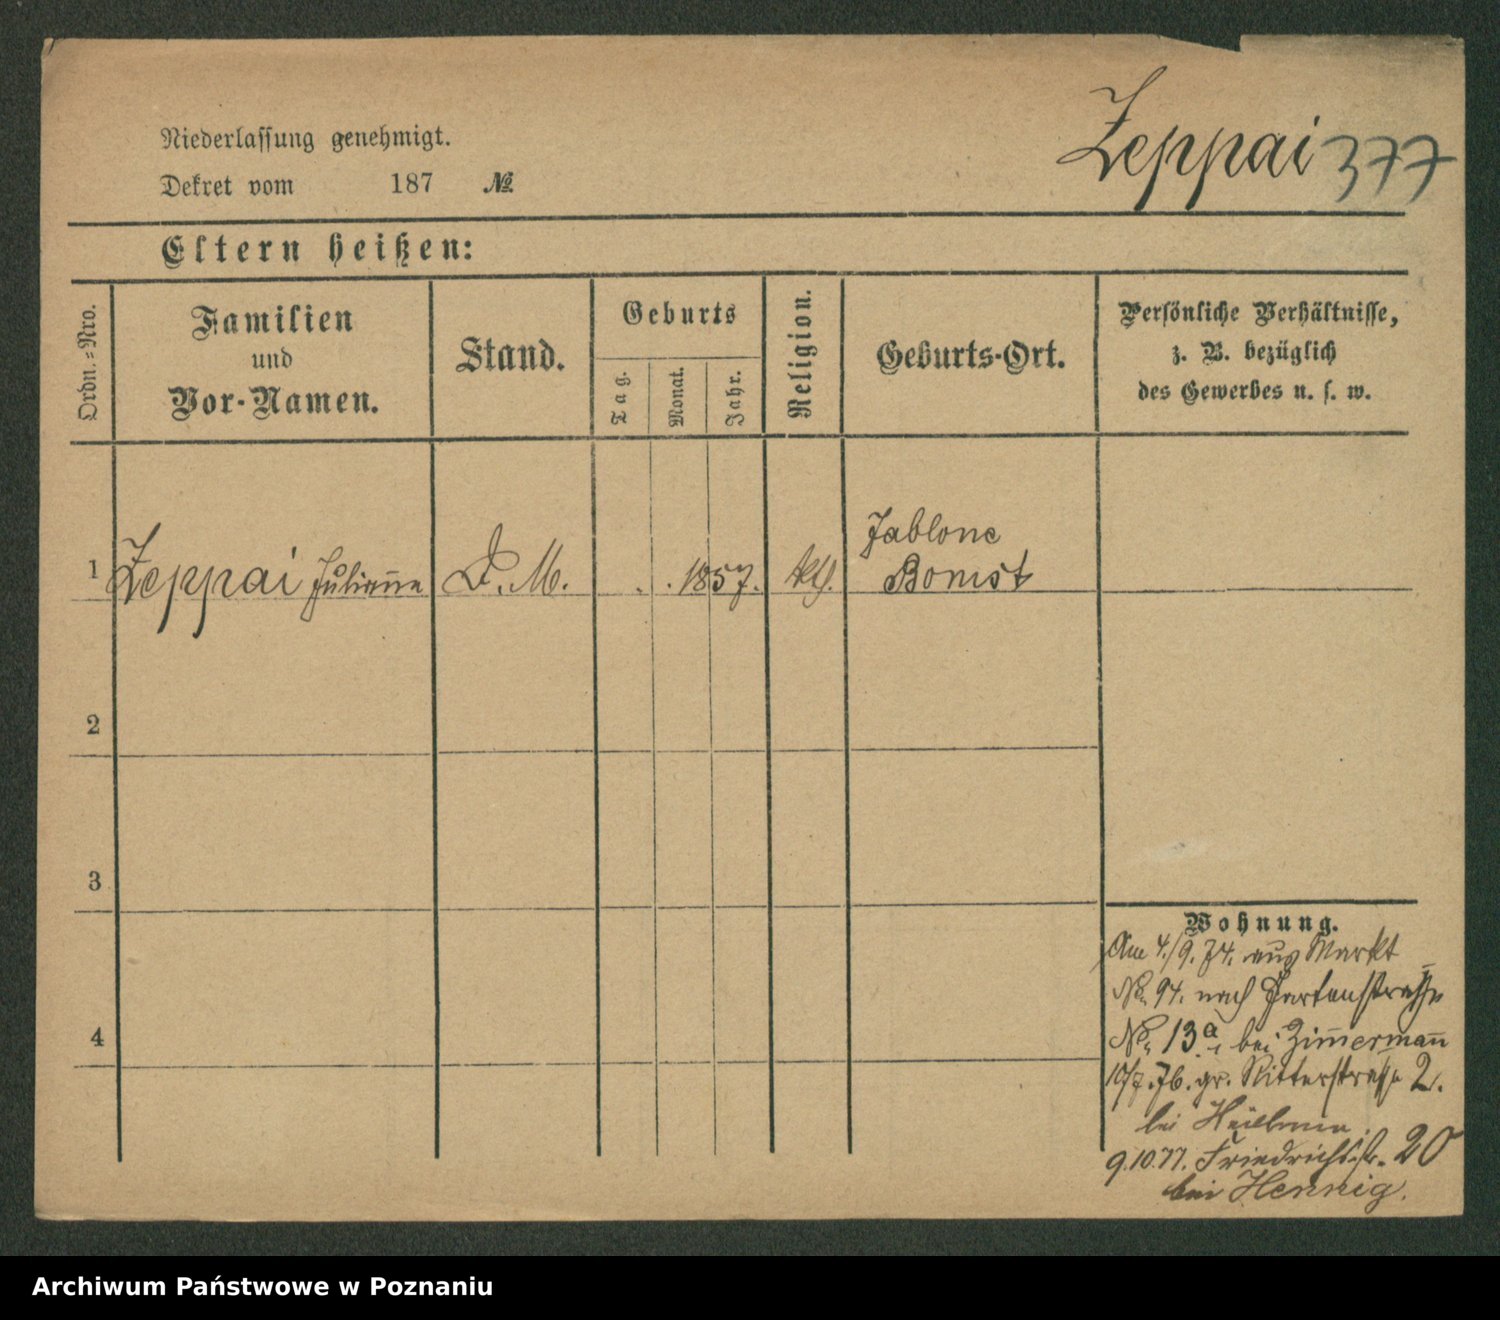 Niederlassung genehmigt.
Dekret vom 187 №
Zeppai 377
Eltern heißen:
Ordn.=Nro.
Familien
und
Vor-Namen.
Stand.
Geburts
Tag.
Monat.
Jahr.
Religion.
Geburts-Ort.
Persönliche Verhältnisse,
z. B. bezüglich
des Gewerbes u. s. w.
1 Zeppai Julian̄a D. M. . . 1857. kth. Jablone
Bomst
2
3
4
Wohnung.
Am 4./9. 74. aus Markt
No. 94. nach Gartenstrasse
No. 13a, bei Zim̄erman̄
10/7. 76. gr. Ritterstrasse 2.
bei
9.10.77. Friedrichstr. 20
bei Hennig.
Archiwum Państwowe w Poznaniu